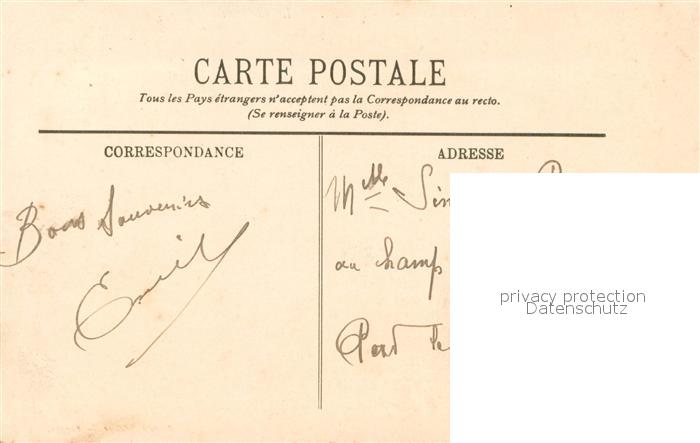 CARTE POSTALE
Tous les Pays étrangers n'acceptent pas la Correspondance au recto.
(Se renseigner à la Poste).
CORRESPONDANCE
ADRESSE
Bons Souvenirs
Emil
Mlle
au champ
privacy protection
Datenschutz